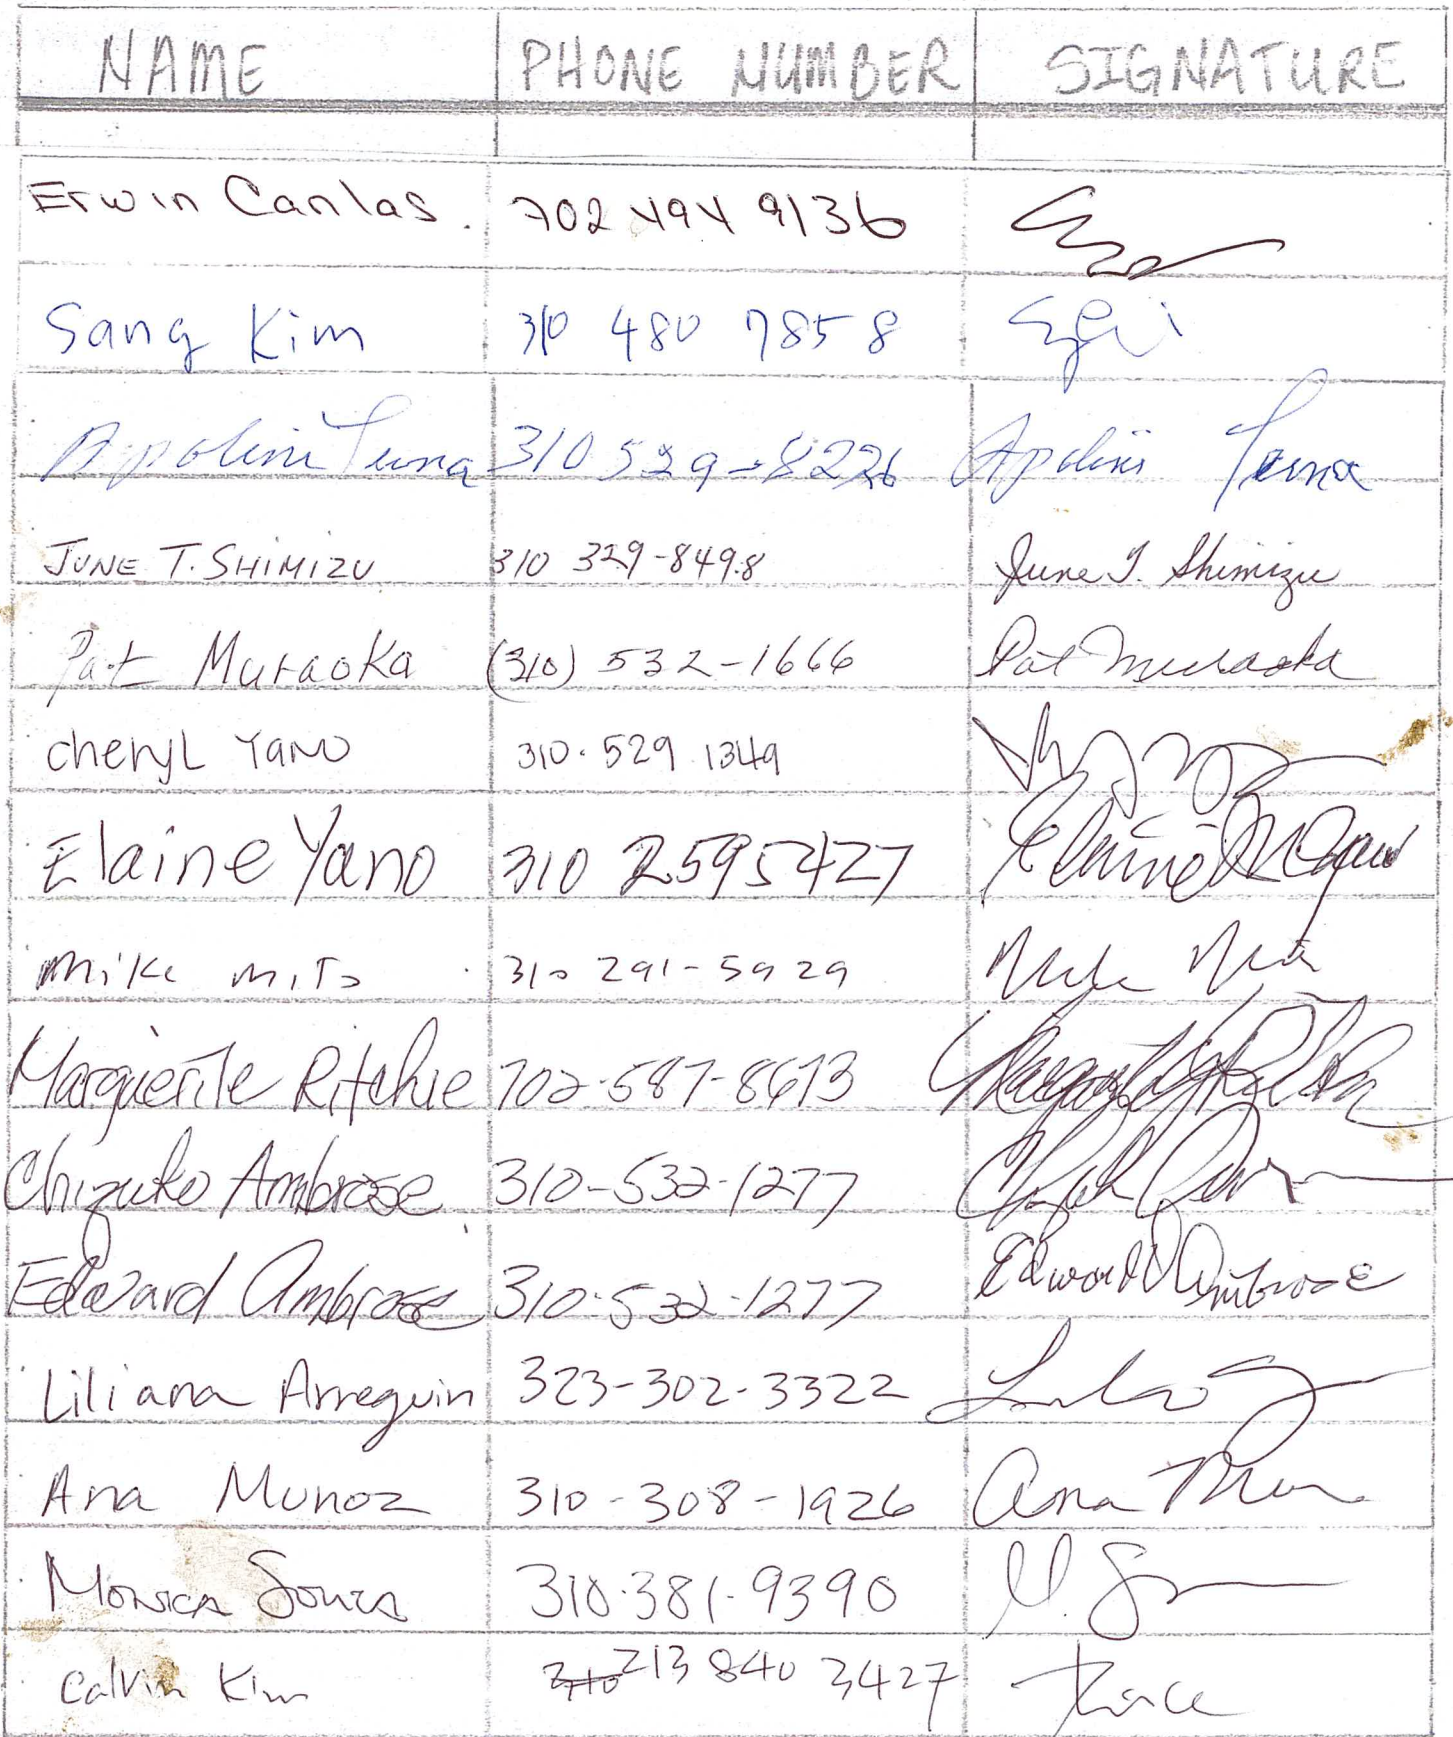 NAME PHONE NUMBER SIGNATURE
Erwin Canlas. 702 494 9136
Sang Kim 310 480 7858
310 529-8226
JUNE T. SHIMIZU 310 329-8498 June T. Shimizu
Pat Muraoka (310) 532-1666 Pat Muraoka
cheryL YANO 310.529 1349
Elaine Yano 310 2595427
mike mito 310 291-5929
Marguerite Ritchie 702-587-8673
Chizuko Ambrose 310-532-1277
Edward Ambrose 310-532-1277 Edward Ambrose
Liliana Arreguin 323-302-3322
Ana Munoz 310-308-1926 Ana
MONICA 310.381.9390
Calvin Kim 310 213 840 3427